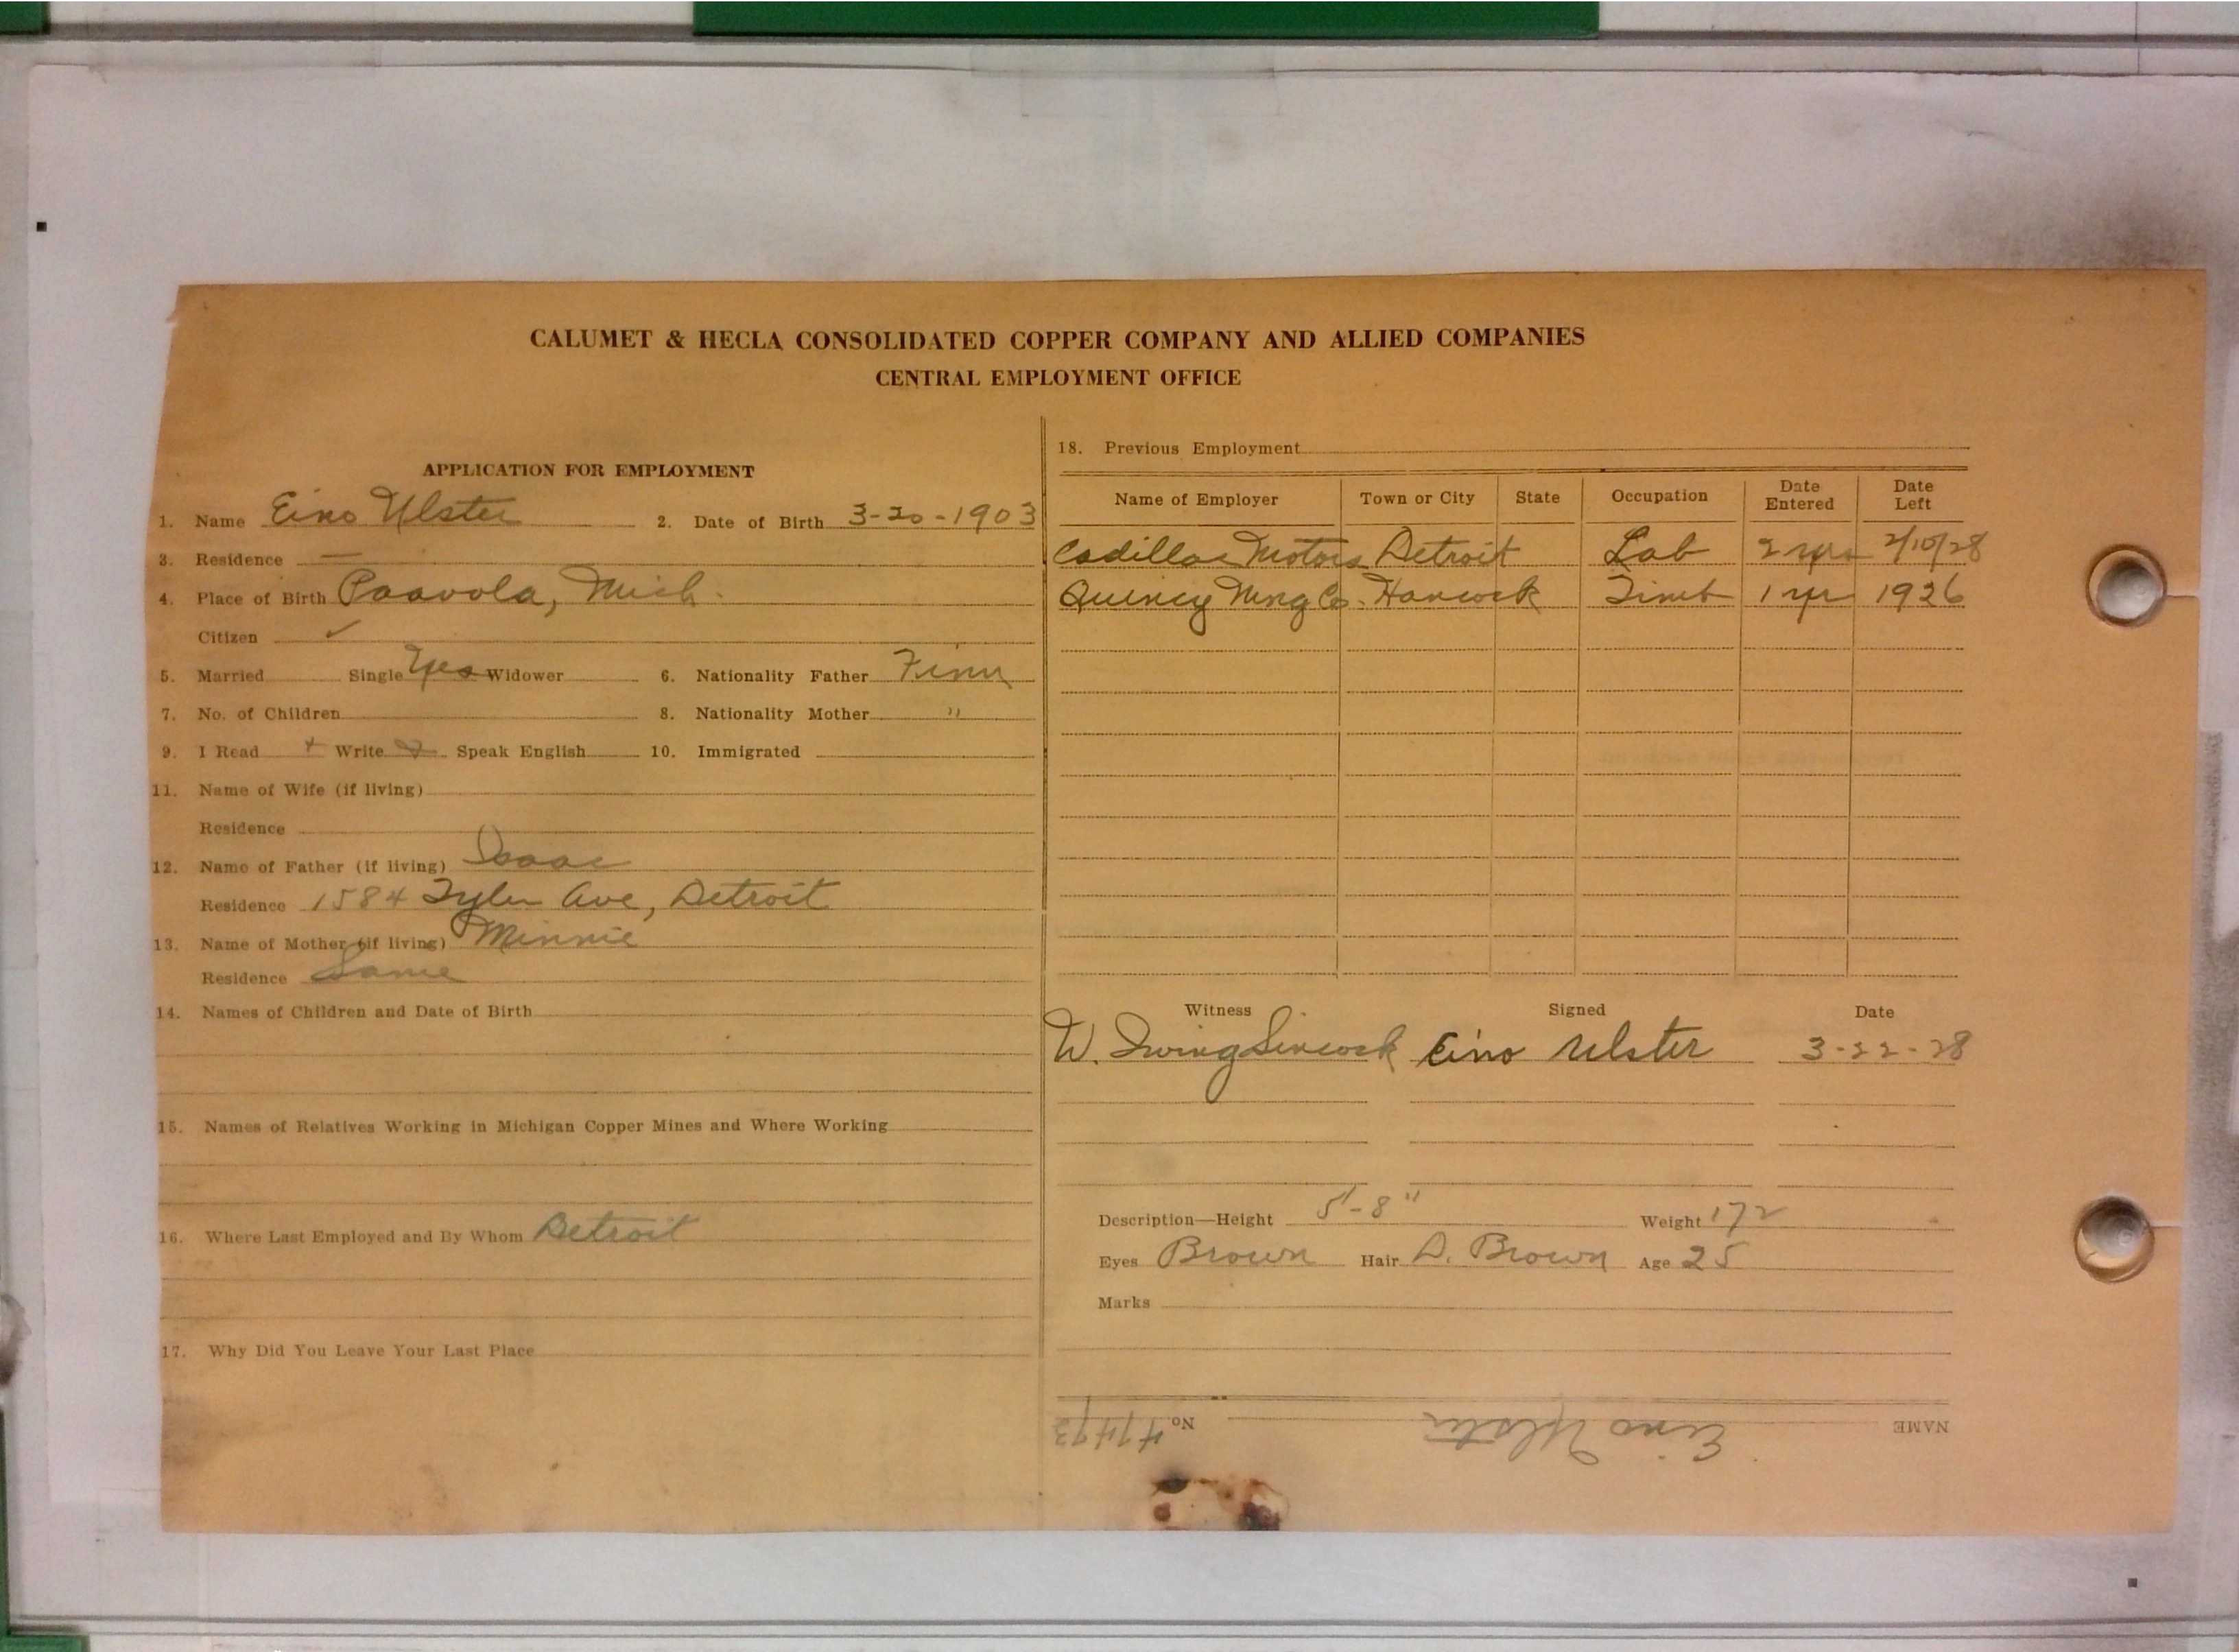 CALUMET & HECLA CONSOLIDATED COPPER COMPANY AND ALLIED COMPANIES
CENTRAL EMPLOYMENT OFFICE
APPLICATION FOR EMPLOYMENT
1. Name Eino Ulster 2. Date of Birth 3-20-1903
3. Residence —
4. Place of Birth Paavola, Mich.
Citizen ✓
5. Married Single Yes Widower 6. Nationality Father Finn
7. No. of Children 8. Nationality Mother "
9. I Read + Write Speak English 10. Immigrated
11. Name of Wife (if living)
Residence
12. Name of Father (if living) Isaac
Residence 1584 Tyler Ave, Detroit
13. Name of Mother (if living) Minnie
Residence Same
14. Names of Children and Date of Birth
15. Names of Relatives Working in Michigan Copper Mines and Where Working
16. Where Last Employed and By Whom Detroit
17. Why Did You Leave Your Last Place
18. Previous Employment
Name of Employer Town or City State Occupation Date Entered Date Left
Cadillac Motors Detroit Lab 2 yrs 2/10/28
Quincy Mng Co. Hancock Timb 1 yr 1926
Witness Signed Date
W. Irving Sincock Eino Ulster 3-22-28
Description—Height 5'-8" Weight 172
Eyes Brown Hair D. Brown Age 25
Marks
NAME Eino Ulster No.